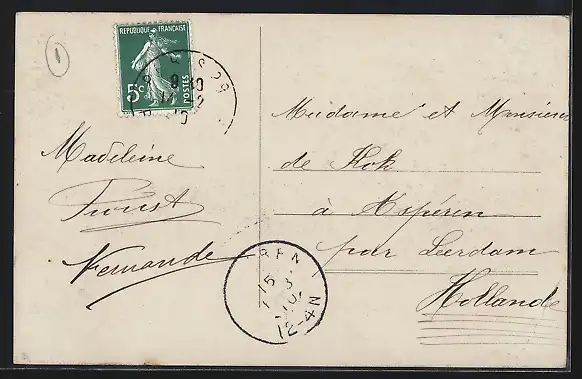 1
REPUBLIQUE FRANÇAISE
5c
POSTES
Madame et Monsieur
de Kok
à Asperen
par Leerdam
Hollande
Madeleine
Fernande
15 3
10
12-4N